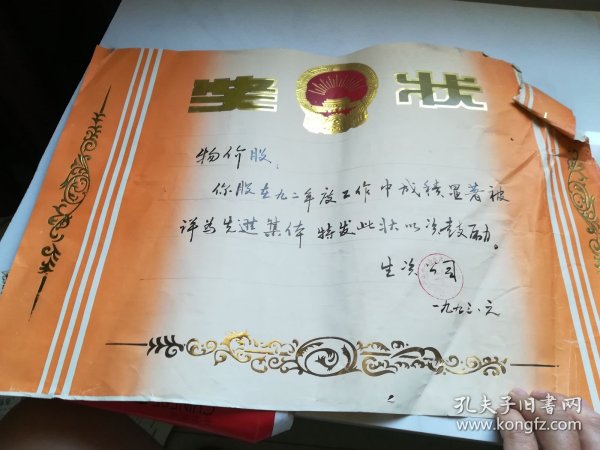 奖 状
物价股:
你股在九二年度工作中成绩显著被
评为先进集体 特发此状以资鼓励。
生资公司
一九九三.元
孔夫子旧书网
www.kongfz.com